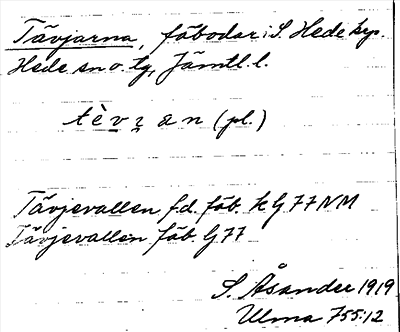 Tävjarna, fäbodar i S. Hede byn.
Hede sn o. tg, Jämtl. l.
tèvʒan (pl.)
Tävjevallen f.d. fäb. k G 77 NM
Tävjevallen fäb. G 77
S. Åsander 1919
Ulma 755:12